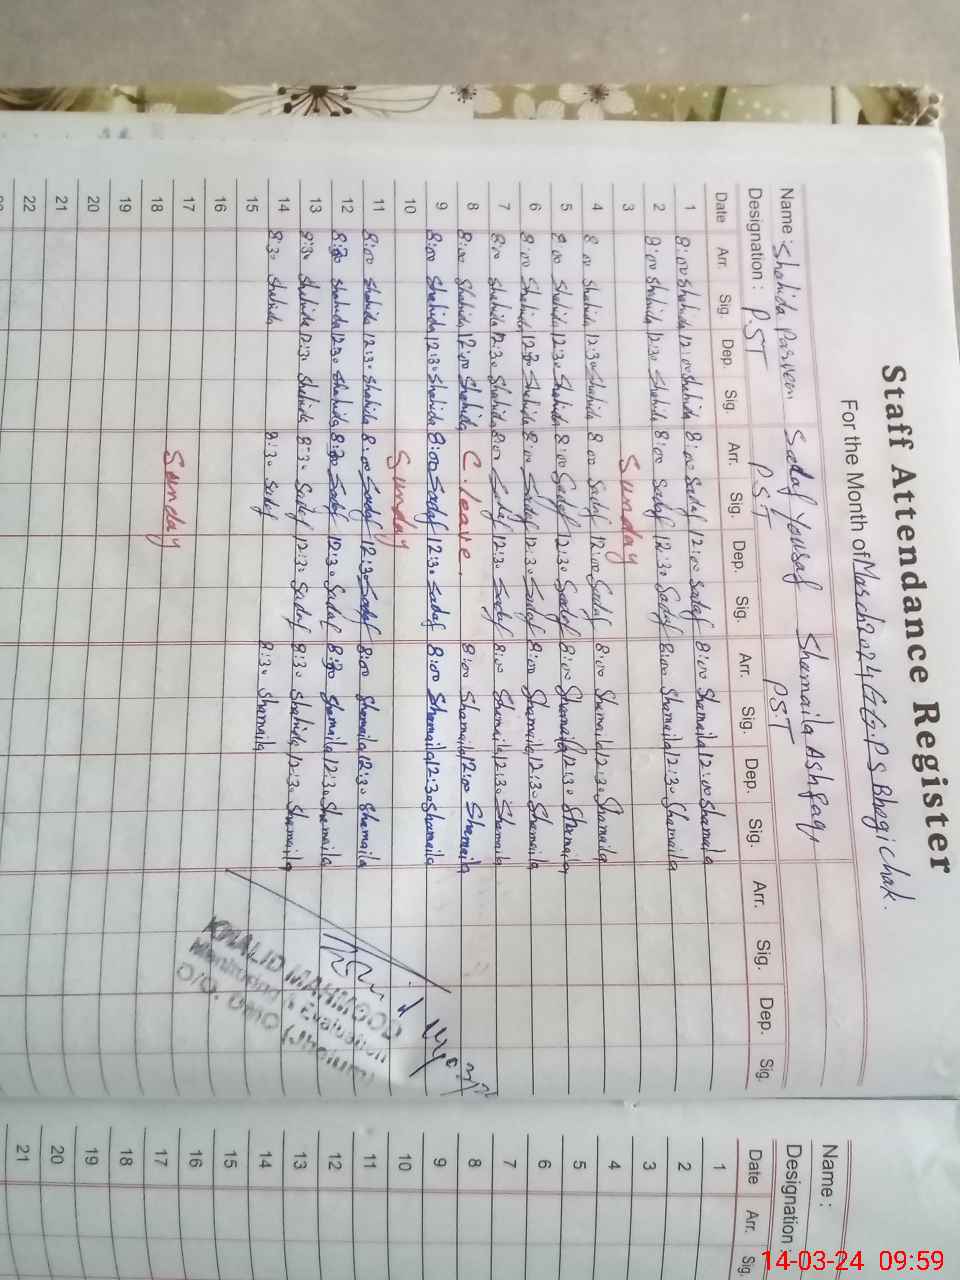 Staff Attendance Register
For the Month of March 2024 G.G.P S Bhogi Chak.
Name : Shahida Parveen Sadaf Yousaf Shamaila Ashfaq
Designation : P.ST P.S.T P.S.T
Date Arr. Sig. Dep. Sig. Arr. Sig. Dep. Sig. Arr. Sig. Dep. Sig. Arr. Sig. Dep. Sig.
1 8:00 Shahida 12:00 Shahida 8:00 Sadaf 12:00 Sadaf 8:00 Shamaila 12:00 Shamaila
2 8:00 Shahida 12:30 Shahida 8:00 Sadaf 12:30 Sadaf 8:00 Shamaila 12:30 Shamaila
3 Sunday
4 8:00 Shahida 12:30 Shahida 8:00 Sadaf 12:00 Sadaf 8:00 Shamaila 12:30 Shamaila
5 8:00 Shahida 12:30 Shahida 8:00 Sadaf 12:30 Sadaf 8:00 Shamaila 12:30 Shamaila
6 8:00 Shahida 12:30 Shahida 8:00 Sadaf 12:30 Sadaf 8:00 Shamaila 12:30 Shamaila
7 8:00 Shahida 12:30 Shahida 8:00 Sadaf 12:30 Sadaf 8:00 Shamaila 12:30 Shamaila
8 8:00 Shahida 12:00 Shahida C.leave. 8:00 Shamaila 12:00 Shamaila
9 8:00 Shahida 12:30 Shahida 8:00 Sadaf 12:30 Sadaf 8:00 Shamaila 12:30 Shamaila
10 Sunday
11 8:00 Shahida 12:30 Shahida 8:00 Sadaf 12:30 Sadaf 8:00 Shamaila 12:30 Shamaila
12 8:30 Shahida 12:30 Shahida 8:30 Sadaf 12:30 Sadaf 8:30 Shamaila 12:30 Shamaila
13 8:30 Shahida 12:30 Shahida 8:30 Sadaf 12:30 Sadaf 8:30 Shahida 12:30 Shamaila
14 8:30 Shahida 8:30 Sadaf 8:30 Shamaila
15
16
17 Sunday
18
19
20
21
22
KHALID MAHMOOD
Monitoring & Evaluation
Name :
Designation :
Date Arr. Sig.
1
2
3
4
5
6
7
8
9
10
11
12
13
14
15
16
17
18
19
20
21
14-03-24 09:59